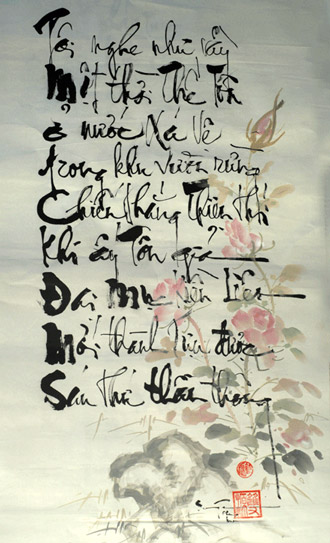 Tôi nghe như vầy
Một thời Thế Tôn
ở nước Xá Vệ
trong khu vườn rừng
Chiến thắng Thiên thị
Khi ấy Tôn giả
Đại Mục Kiền Liên
Mới thành tựu được
Sáu thứ thần thông